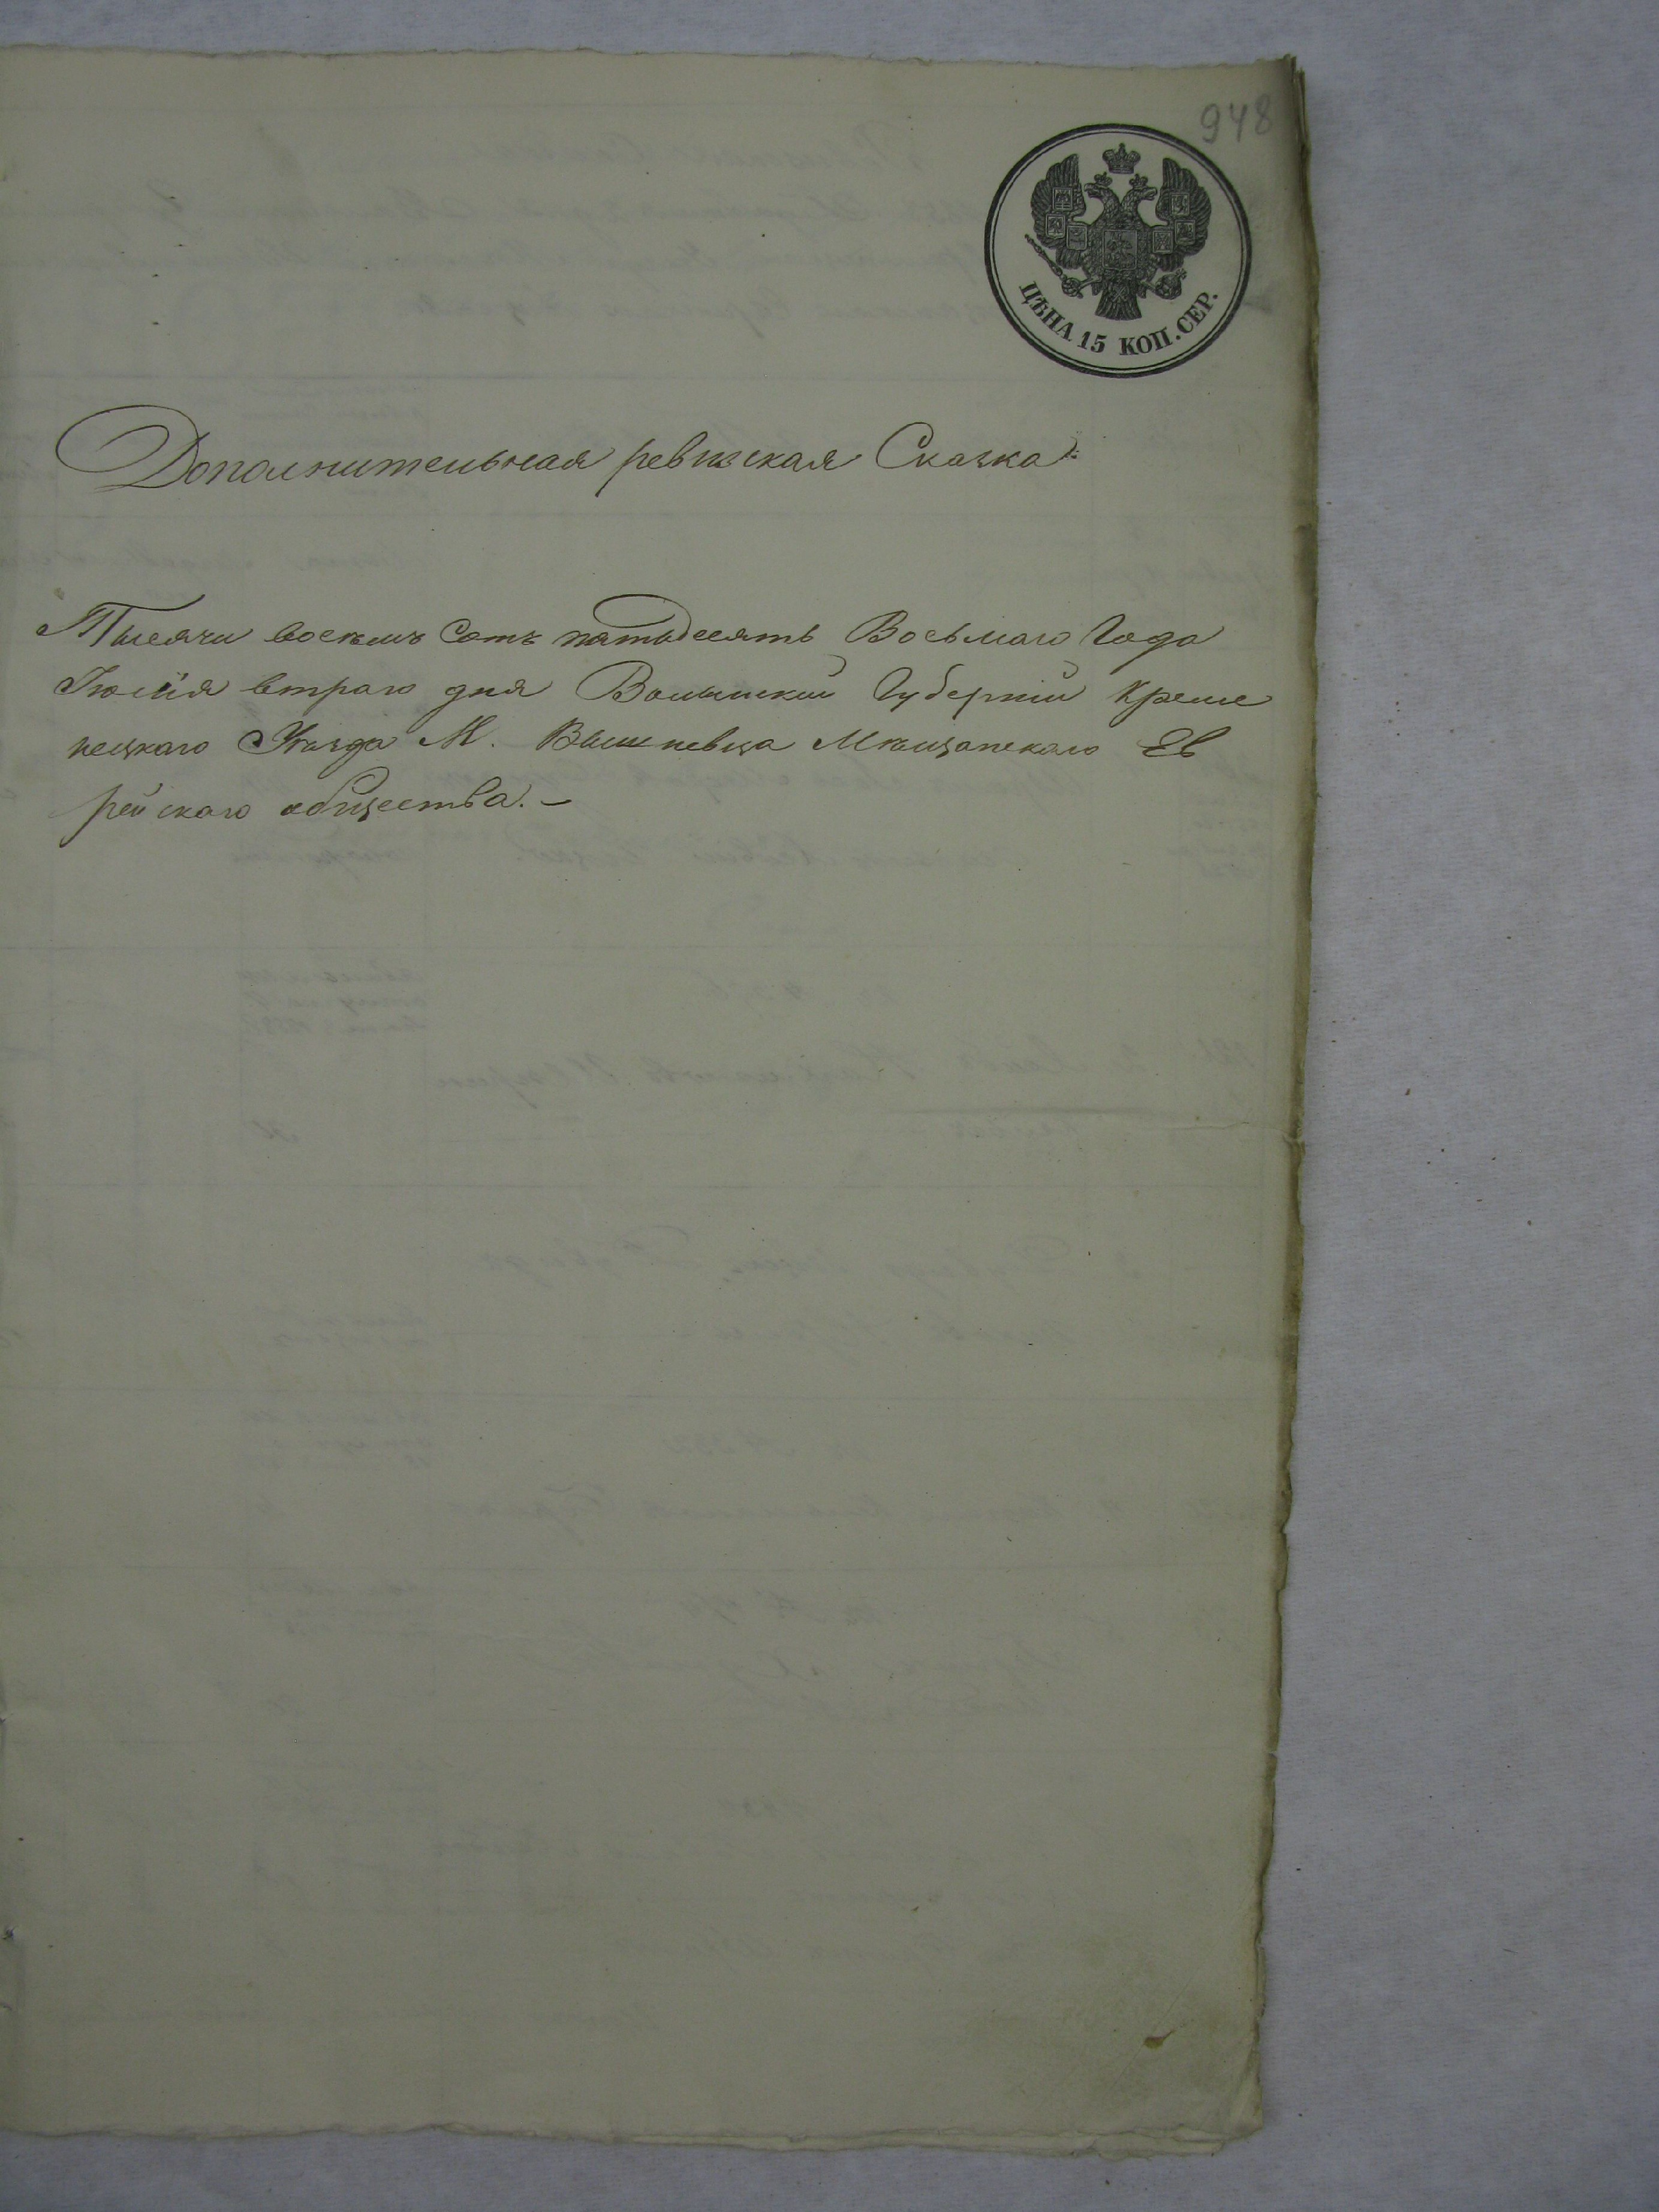 948
ЦѢНА 15 КОП. СЕР.
Дополнительная ревизская Сказка
Тысячи восемь Сотъ пятьдесятъ Восьмаго Года
Іюлія втраго дня Волынской Губерніи Креме
нецкаго Уѣзда М. Вышневца Мѣщанскаго Ев
рейскаго общества. —